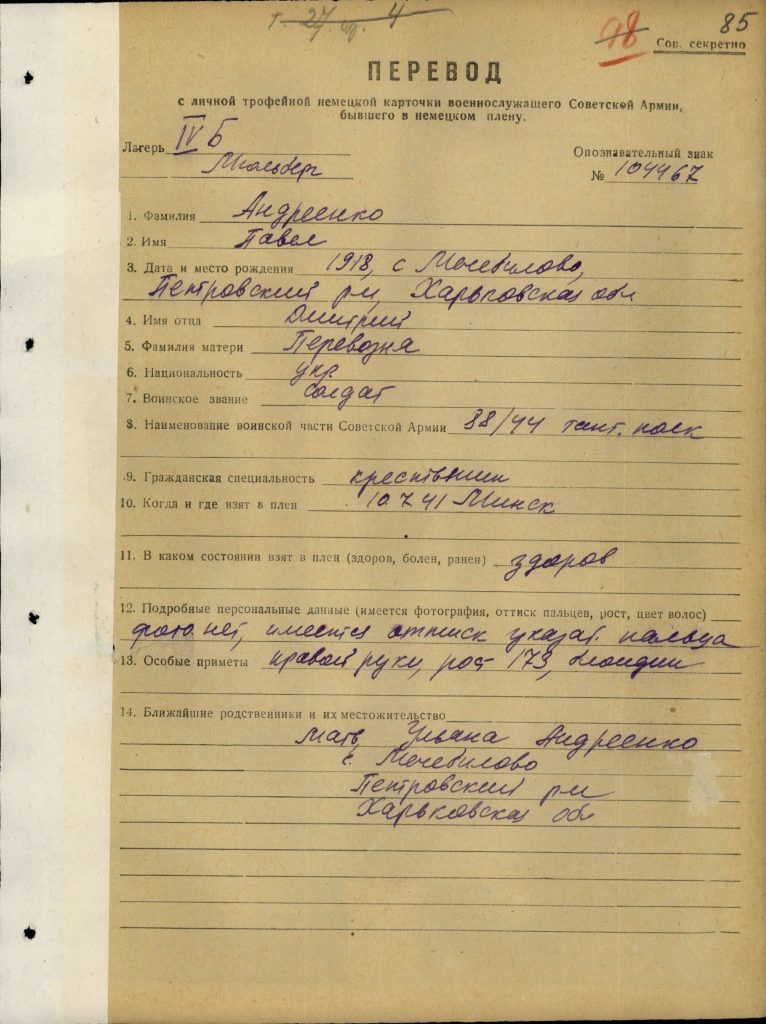 т. 27 ср. 4
98 85
Сов. секретно
ПЕРЕВОД
с личной трофейной немецкой карточки военнослужащего Советской Армии,
бывшего в немецком плену.
Лагерь IV Б
Мюльберг
Опознавательный знак
№ 104467
1. Фамилия Андреенко
2. Имя Павел
3. Дата и место рождения 1918, с Мечебилово,
Петровский р-н, Харьковская обл
4. Имя отца Дмитрий
5. Фамилия матери Перевозня
6. Национальность укр.
7. Воинское звание солдат
8. Наименование воинской части Советской Армии 88/44 танк. полк
9. Гражданская специальность крестьянин
10. Когда и где взят в плен 10.7.41 Минск
11. В каком состоянии взят в плен (здоров, болен, ранен) здоров
12. Подробные персональные данные (имеется фотография, оттиск пальцев, рост, цвет волос)
фото нет, имеется оттиск указат. пальца
13. Особые приметы правой руки, рост 173, блондин
14. Ближайшие родственники и их местожительство
Мать, Ульяна Андреенко
с. Мечебилово
Петровский р-н
Харьковская обл